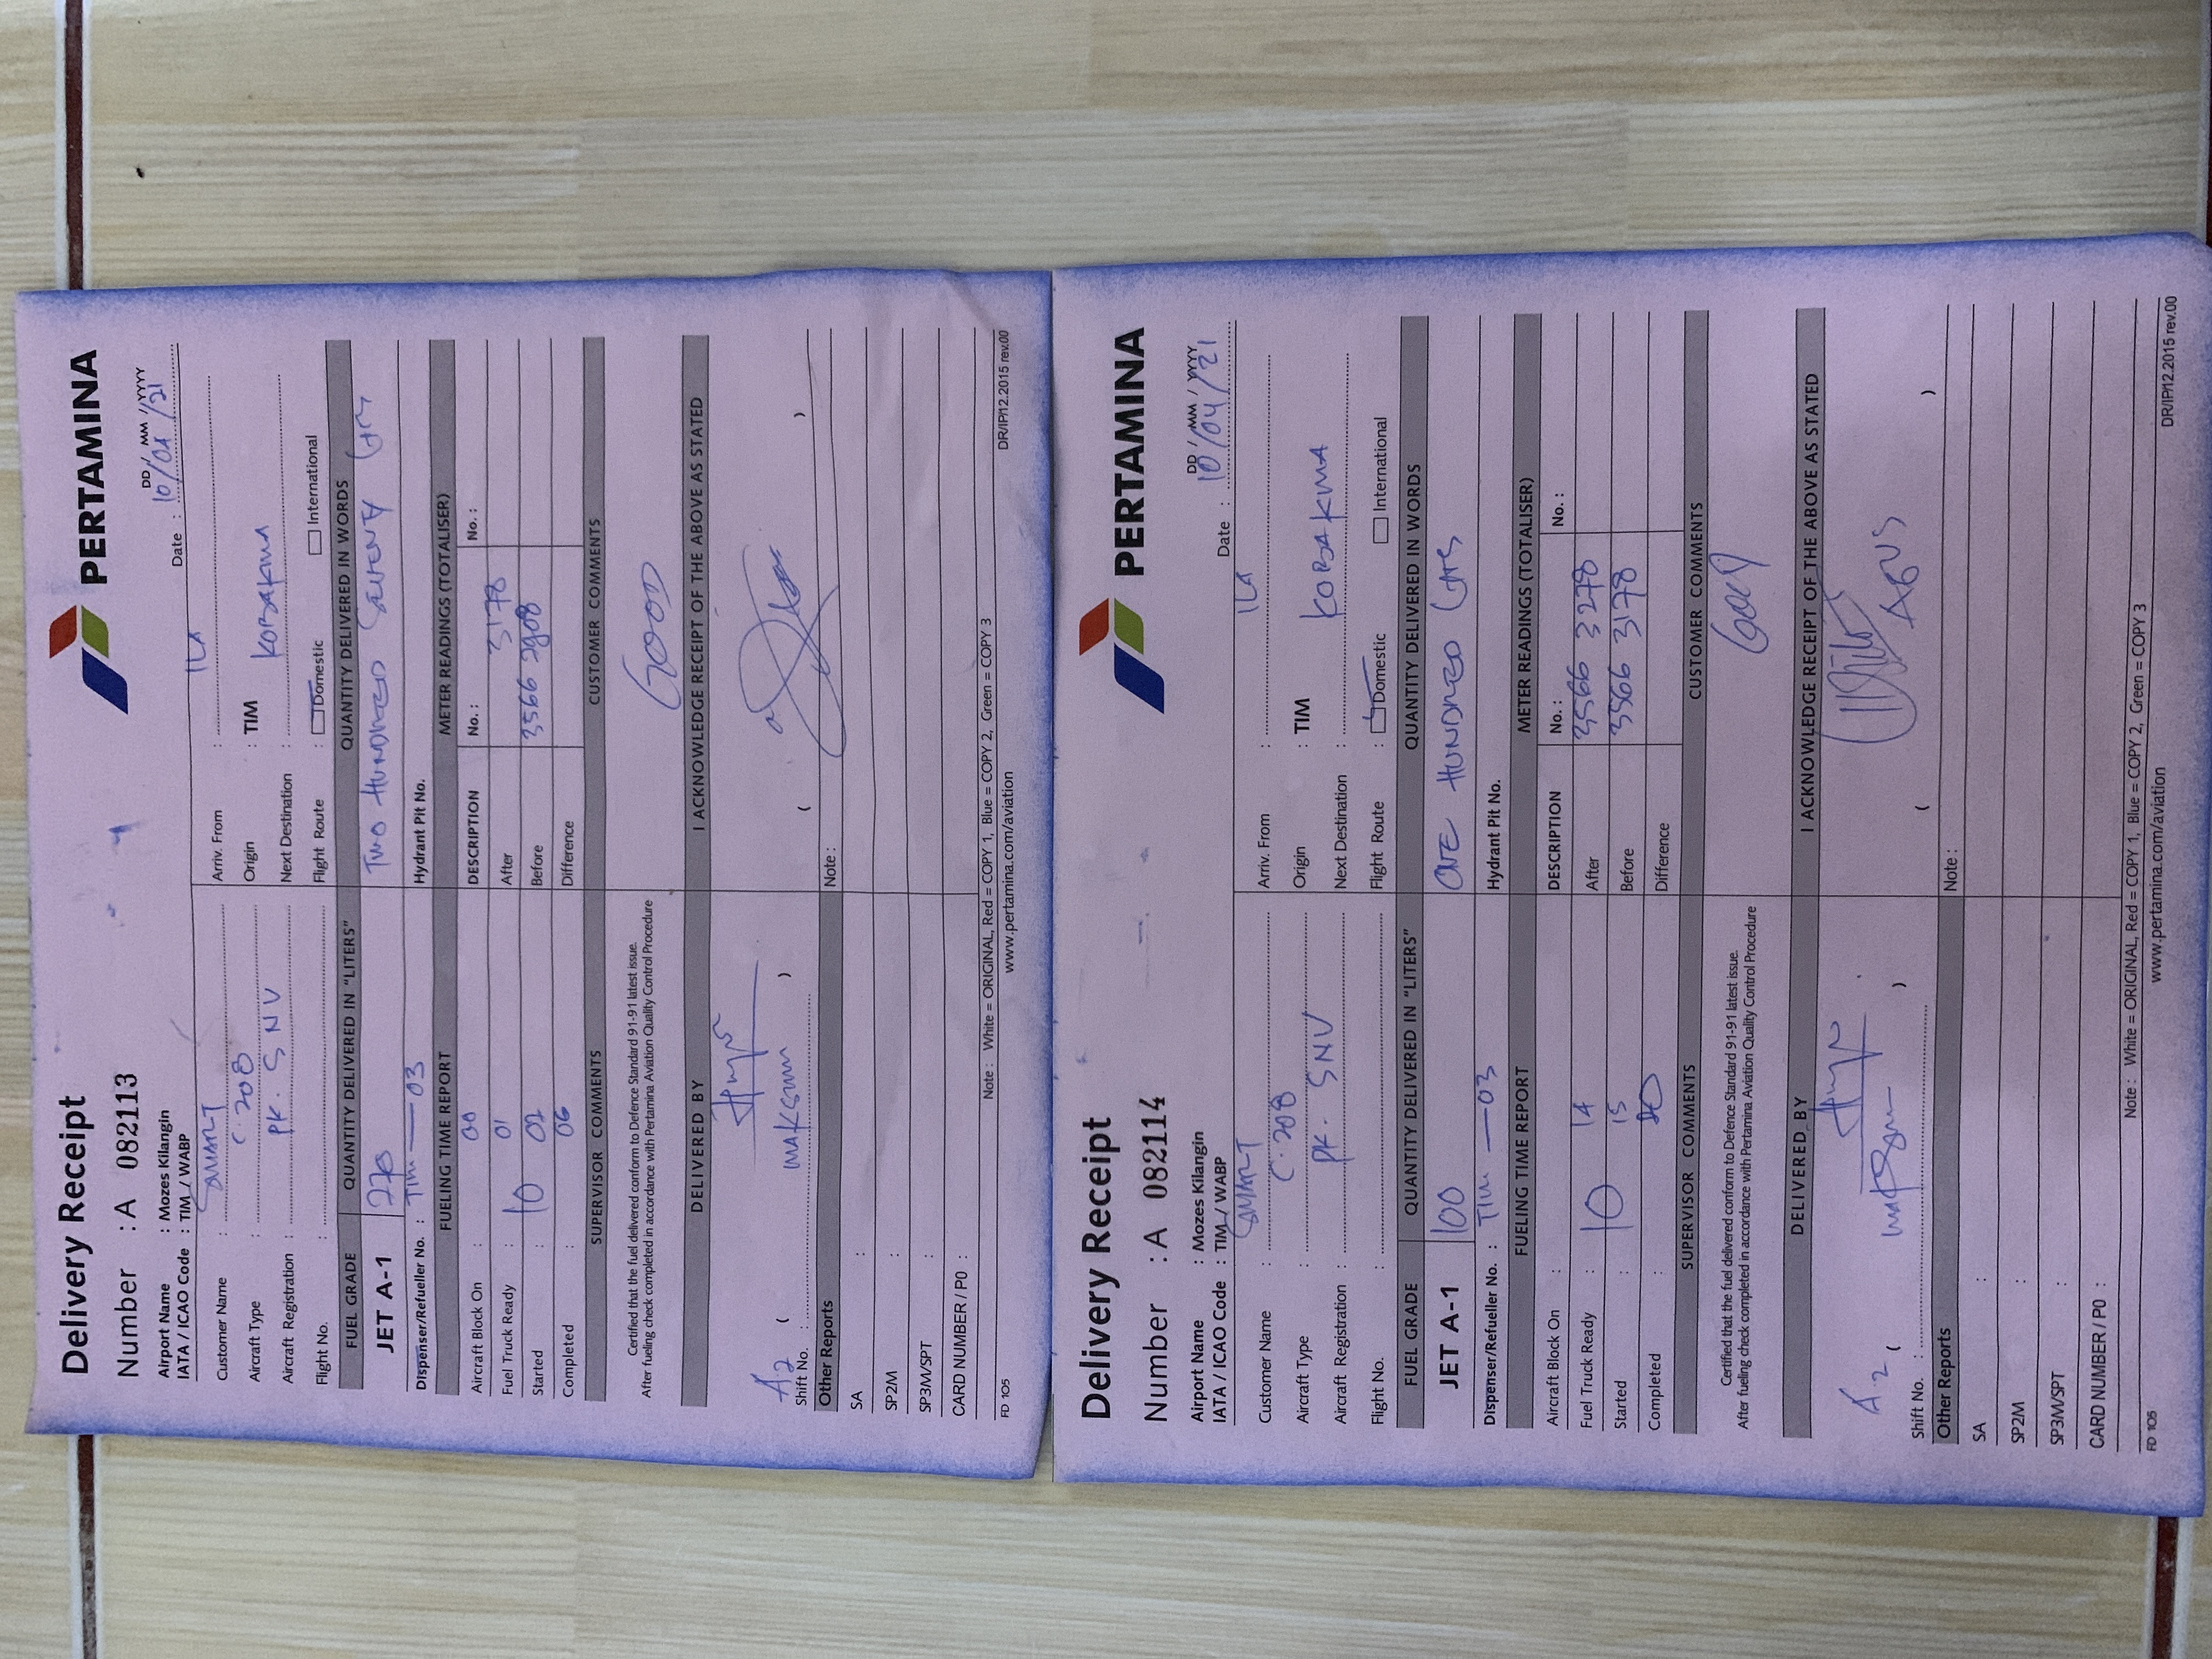 Delivery Receipt
PERTAMINA
Number : A 082113
Airport Name : Mozes Kilangin
IATA / ICAO Code : TIM / WABP
DD / MM / YYYY
Date : 10/04/21
Customer Name : SMART
Arriv. From :
Aircraft Type : C.208
Origin : TIM
Aircraft Registration : PK. SNV
Next Destination : KOBAKMA
Flight No. :
Flight Route : Domestic International
FUEL GRADE QUANTITY DELIVERED IN "LITERS" QUANTITY DELIVERED IN WORDS
JET A-1 270 TWO HUNDRED SEVENTY LTRS
Dispenser/Refueller No. : TIM — 03 Hydrant Pit No.
FUELING TIME REPORT METER READINGS (TOTALISER)
Aircraft Block On : 00 DESCRIPTION No. : No. :
Fuel Truck Ready : 01 After 3178
Started : 10 02 Before 3566 2908
Completed : 06 Difference
SUPERVISOR COMMENTS CUSTOMER COMMENTS
Certified that the fuel delivered conform to Defence Standard 91-91 latest issue.
After fueling check completed in accordance with Pertamina Aviation Quality Control Procedure
GOOD
DELIVERED BY I ACKNOWLEDGE RECEIPT OF THE ABOVE AS STATED
A.2 ( maksum ) ( )
Shift No. :
Other Reports Note :
SA :
SP2M :
SP3M/SPT :
CARD NUMBER / PO :
Note : White = ORIGINAL, Red = COPY 1, Blue = COPY 2, Green = COPY 3
FD 105 www.pertamina.com/aviation DR/IP/12.2015 rev.00
Delivery Receipt
PERTAMINA
Number : A 082114
Airport Name : Mozes Kilangin
IATA / ICAO Code : TIM / WABP
DD / MM / YYYY
Date : 10/04/21
Customer Name : SMART
Arriv. From :
Aircraft Type : C.208
Origin : TIM
Aircraft Registration : PK. SNV
Next Destination : KOBAKMA
Flight No. :
Flight Route : Domestic International
FUEL GRADE QUANTITY DELIVERED IN "LITERS" QUANTITY DELIVERED IN WORDS
JET A-1 100 ONE HUNDRED LTRS
Dispenser/Refueller No. : TIM — 03 Hydrant Pit No.
FUELING TIME REPORT METER READINGS (TOTALISER)
Aircraft Block On : DESCRIPTION No. : No. :
Fuel Truck Ready : 14 After 3566 3278
Started : 10 15 Before 3566 3178
Completed : Difference
SUPERVISOR COMMENTS CUSTOMER COMMENTS
Certified that the fuel delivered conform to Defence Standard 91-91 latest issue.
After fueling check completed in accordance with Pertamina Aviation Quality Control Procedure
Good
DELIVERED BY I ACKNOWLEDGE RECEIPT OF THE ABOVE AS STATED
A.2 ( maksum ) ( AGUS )
Shift No. :
Other Reports Note :
SA :
SP2M :
SP3M/SPT :
CARD NUMBER / PO :
Note : White = ORIGINAL, Red = COPY 1, Blue = COPY 2, Green = COPY 3
FD 105 www.pertamina.com/aviation DR/IP/12.2015 rev.00